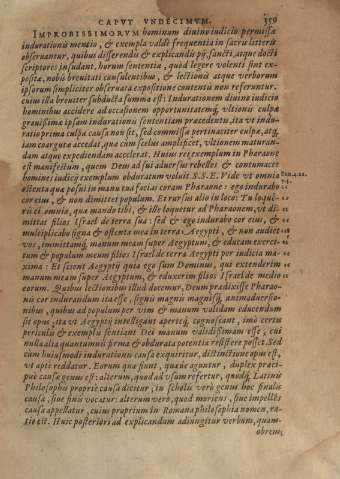 CAPVT VNDECIMVM. 359
IMPROBISSIMORVM hominum diuino iudicio permissæ
indurationis mentio, & exempla valdè frequentia in sacris litteris
obseruantur, quibus disserendis & explicandis pij, sancti, atque docti
scriptores insudant. horum sententia, quòd legere volenti sint ex-
positæ, nobis breuitati consulentibus, & lectionis atque verborum
ipsorum simpliciter obseruata expositione contentis non referuntur.
cuius illa breuiter subducta summa est: Indurationem diuino iudicio
hominibus accidere ad occasionem opportunitatemq́; vltionis culpæ
grauissimæ ipsam indurationis sententiam præcedentis, ita vt indu-
rationis prima culpa causa non sit, sed commissæ pertinaciter culpæ, atq́;
iam coarguta accedat, quæ cùm scelus amplificet, vltionem maturan-
dam atque expediendam acceleret. Huius rei exemplum in Pharaone
est manifestum, quem Deus ad sui aduersus rebelles & contumaces
homines iudicij exemplum obduratum voluit. S.S.E. Vide vt omnia Exo.4.21.
ostenta quæ posui in manu tua facias coram Pharaone: ego indurabo
cor eius, & non dimittet populum. Et rursus alio in loco: Tu loque-
ris ei omnia, quæ mando tibi, & ille loquetur ad Pharaonem, vt di-
mittat filios Israel de terra sua: sed & ego indurabo cor eius, &
multiplicabo signa & ostenta mea in terra Aegypti, & non audiet
vos, immittamq́; manum meam super Aegyptum, & educam exerci-
tum & populum meum filios Israel de terra Aegypti per iudicia ma-
xima: Et scient Aegyptij quia ego sum Dominus, qui extenderim
manum meam super Aegyptum, & eduxerim filios Israel de medio
eorum. Quibus lectionibus illud docemur, Deum prædixisse Pharao-
nis cor indurandum ita esse, signis magnis magnisq́; animaduersio-
nibus, quibus ad populum per vim & manum validam educendum
sit opus: ita vt Aegyptij intelligant apertéq́; cognoscant, imò certis
periculis & exemplis sentiant Dei manum validissimam esse, cui
nulla alia quantumuis firma & obdurata potentia resistere posset. Sed
cùm huiusmodi indurationis causa exquiritur, distinctione opus est,
vt aptè reddatur. Eorum quæ fiunt, quæuis aguntur, duplex præci-
puè causæ genus est: alterum, quod ad vsum refertur, quodq́; Latinis
Philosophis propriè causa dicitur, in scholis verò genus hoc finalis
causa, siue finis vocatur: alterum verò, quod mouens, siue impellens
causa appellatur, cuius proprium in Romana philosophia nomen, ra-
tio est. Huic posteriori ad explicandum adiungitur verbum, quam-
obrem;